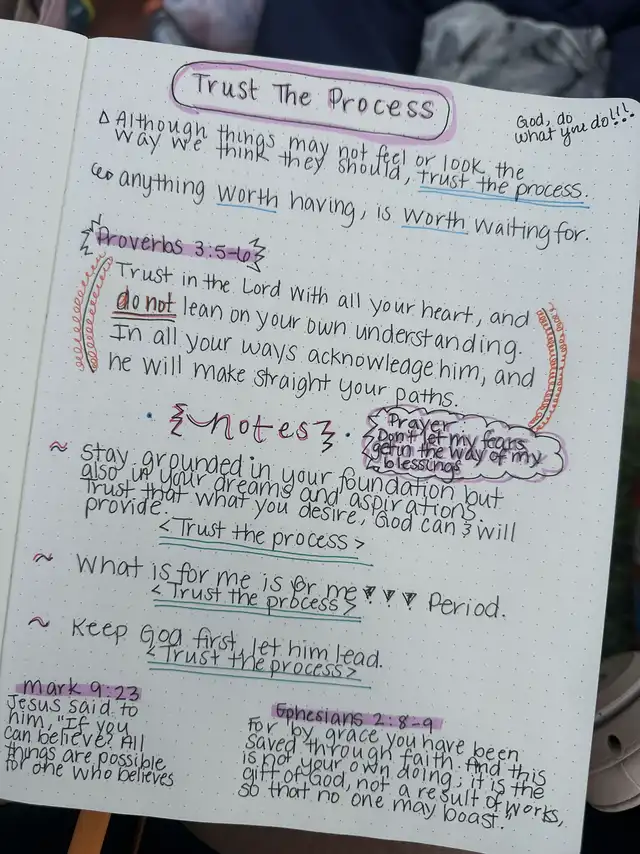 Trust The Process
God, do
what you do!!!
Although things may not feel or look the
way we think they should, trust the process.
anything worth having, is worth waiting for.
Proverbs 3:5-6
Trust in the Lord with all your heart, and
do not lean on your own understanding.
In all your ways acknowledge him, and
he will make straight your paths.
Notes
Prayer
Don't let my fears
get in the way of my
blessings
~ Stay grounded in your foundation but
also in your dreams and aspirations.
Trust that what you desire, God can & will
provide.
<Trust the process>
~ What is for me is for me Period.
<Trust the process>
~ Keep God first, let him lead.
<Trust the process>
mark 9:23
Jesus said to
him, "If you
can believe? All
things are possible
for one who believes
Ephesians 2:8-9
For by grace you have been
saved through faith. And this
is not your own doing; it is the
gift of God, not a result of works,
so that no one may boast."